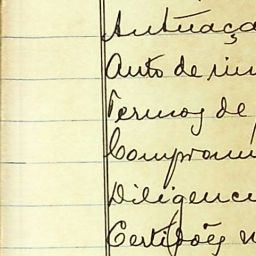 Autuaçã
Auto de in
Termos de
Compromi
Diligenci
Certidões n